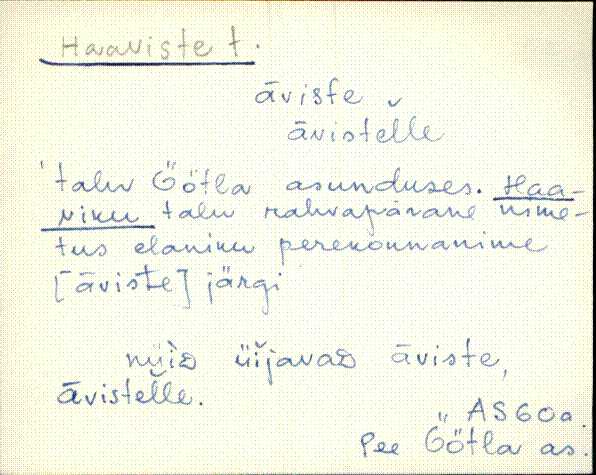 Haaviste t.
āviste
āvistĕlle
talu Göötla asunduses. Haa-
niku talu rahvapärane nime-
tus elaniku perekonnanime
[āviste] järgi
nüìᴅ üìjavaᴅ āviste,
āvistelle.
AS60a
Pee Göötla as.